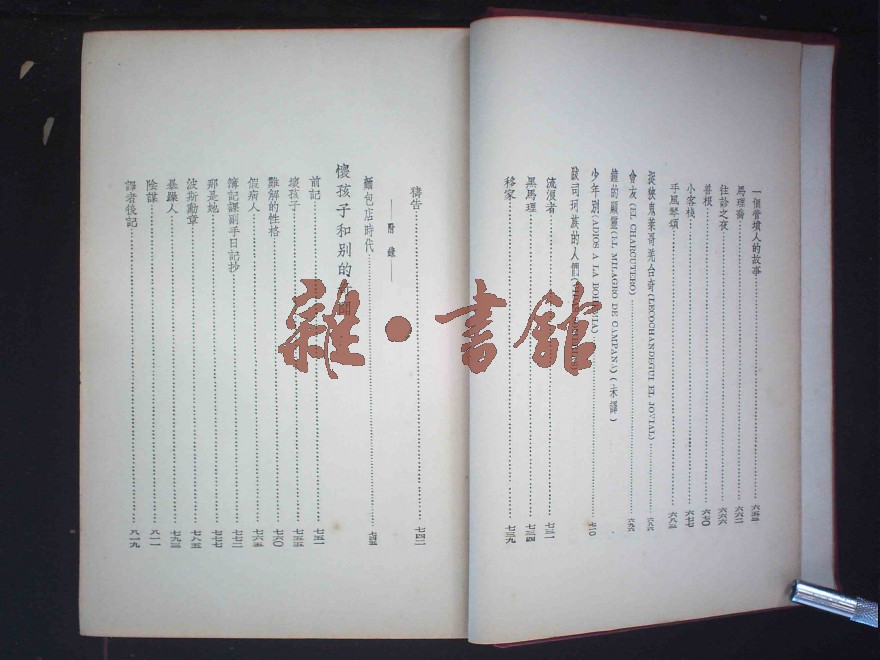 一個管墳人的故事……六五三
馬理喬……六六二
往診之夜……六六六
善根……六七〇
小客棧……六七七
手風琴頌……六八三
捉狹鬼萊哥羌台奇(LECOCHANDEGUI EL JOVIAL)
會友(EL CHARCUTERO)
鐘的顯靈(EL MILAGRO DE CAMPANA)(未譯)
少年別(ADIOS A LA BOHEMIA)……七一〇
跋司珂族的人們
流浪者……七三一
黑馬理……七三四
移家……七三九
禱告……七四二
——附錄——
麵包店時代……七四五
壞孩子和別的奇聞
前記……七五一
壞孩子……七五五
難解的性格……七六〇
假病人……七六五
簿記課副手日記抄……七七二
那是她……七七七
波斯勳章……七八五
暴躁人……七九三
陰謀……八一一
譯者後記……八一九
雜·書館